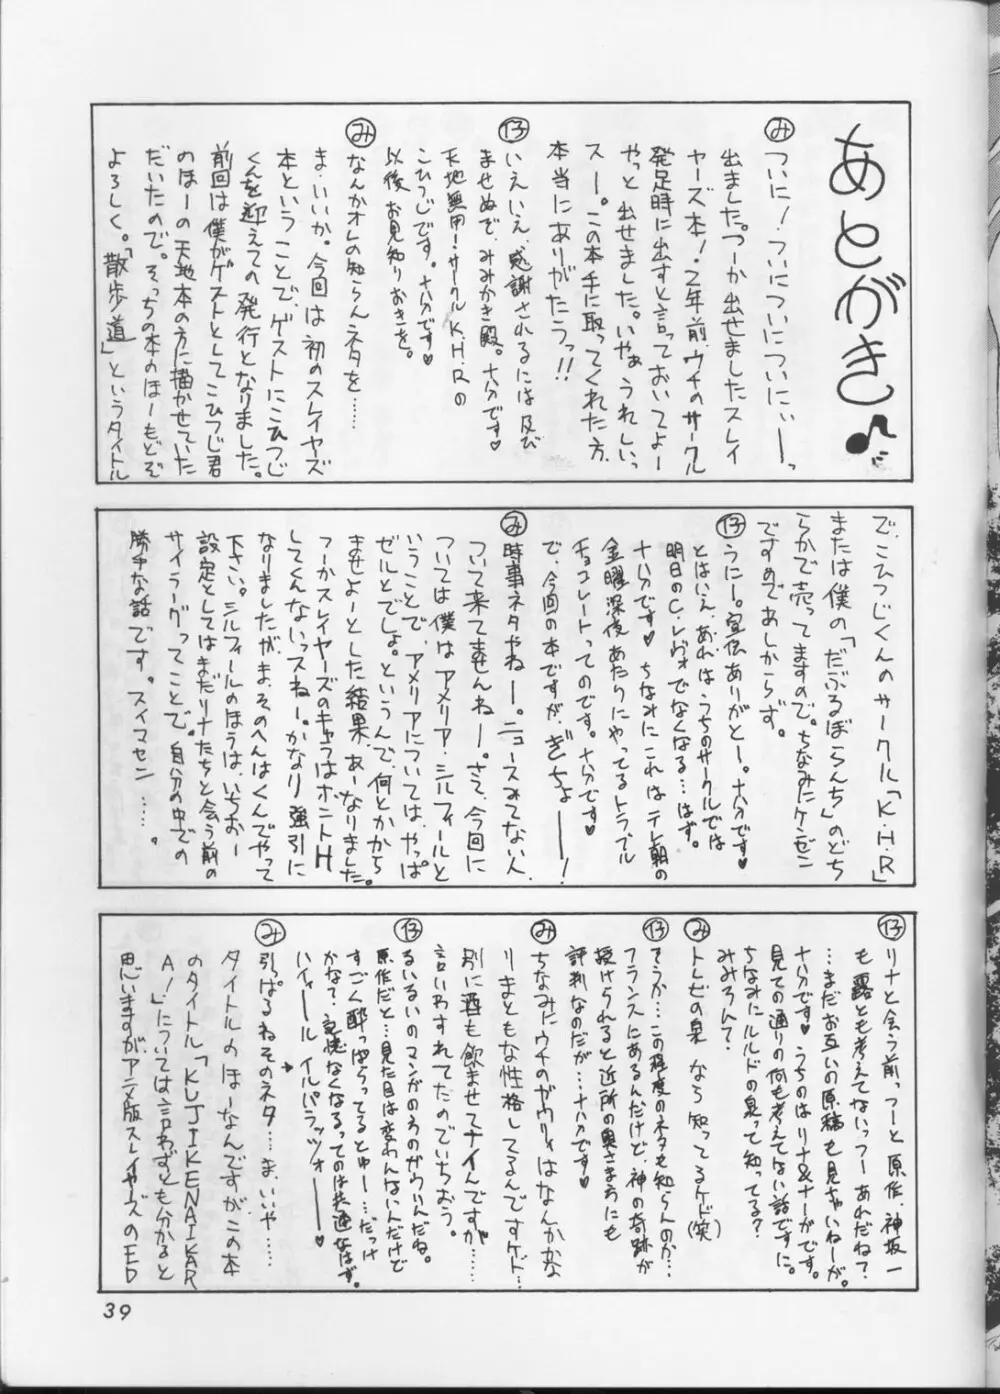 あとがき
み
ついに!ついについについにぃーっ
出ました。つーか出せましたスレイ
ヤーズ本!2年前、ウチのサークル
発足時に出すと言っておいてよー
やっと出せました。いやぁ うれしいっ
スー。この本手に取ってくれた方、
本当にありがたうっ!!
仔
いえいえ、感謝されるには及び
ませぬで、みみかき殿。十分です♥
天地無用!サークルK.H.Rの
こひつじです。十分です♥
以後、お見知りおきを。
み
なんかオレの知らんネタを……
ま、いいか。今回は初のスレイヤーズ
本ということで、ゲストにこひつじ
くんを迎えての発行となりました。
前回は僕がゲストとしてこひつじ君
のほーの天地本の方に描かせていた
だいたので。そっちの本のほーもどぞ
よろしく。「散歩道」というタイトル
で、こひつじくんのサークル「K・H・R」
または僕の「だぶるぼらんち」のどち
らかで売ってますので。ちなみにケンゼン
ですのであしからず。
仔
うにー。宣伝ありがとー。十分です♥
とはいえ、あれはうちのサークルでは
明日のC.レヴォでなくなる…はず。
十分です♥ ちなみにこれはテレ朝の
金曜深夜あたりにやってるトラブル
チョコレートってのです。十分です♥
で、今回の本ですが、ぎちょーーー!
み
時事ネタやねー。ニュースみてない人、
ついて来てませんねー。さて、今回に
ついては僕はアメリア・シルフィールと
いうことで、アメリアについては、やっぱ
ゼルとでしょ。というんで、何とかから
ませよーとした結果、あーなりました。
つーかスレイヤーズのキャラはホントH
してくんないっスねー。かなり強引に
なりましたが、ま、そのへんはくんでやって
下さい。シルフィールのほうは、いちおー
設定としてはまだリナたちと会う前の
サイラーグってことで。自分の中での
勝手な話です。スイマセン……。
仔
リナと会う前っつーと原作、神坂一
も露とも考えてないっつーあれだね?
…まだお互いの原稿も見ちゃいねーが。
十分です♥うちのはリナ&ナーガです。
見ての通りの何も考えてない話ですに。
ちなみにルルドの泉って知ってる?
みみろん?
み
トレビの泉 なら知ってるケド(笑)
仔
そうか…この程度のネタも知らんのか…
フランスにあるんだけど、神の奇跡が
授けられると近所の奥さまがたにも
評判なのだが…十分です♥
み
ちなみにウチのガウリィはなんかかな
りまともな性格してるんですケド…
別に酒も飲ませてナイんですが……
言いわすれてたのでいちおう。
仔
るいるいのマンガのそのガウリイんだね。
原作だと…見た目は変わんないんだけど
すごく酔っぱらってるとゆー…だっけ
かな?記憶なくなるってのは共通なはず。
ハイィール イルパラッツォーーー♥
み
引っぱるねそのネタ…ま、いいや……
タイトルのほーなんですが、この本
のタイトル「KUJIKENAIKAR
A!」については言わずとも分かると
思いますが、アニメ版スレイヤーズのED
39